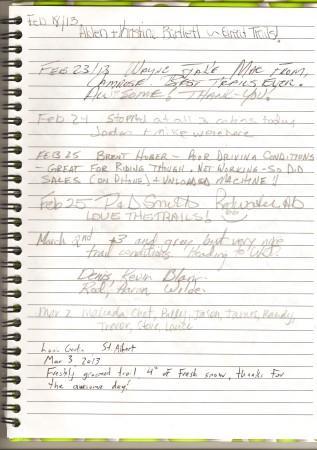 Feb 18/13
Allen + Christine Bartlett ~ Great Trails!
Feb 23/13 Wayne Jake Mac From,
Camrose. Best Trails Ever.
Awesome! Thank-you!
Feb 24 Stopped at all 3 cabins today
Jordan + Mike were here
Feb 25 Brent Huber - Poor Driving Conditions
- Great for Riding Though. Not Working - So Did
Sales (on Phone) + Unloaded Machine!!
Feb 25 P & D Smith
LOVE THE TRAILS!
March 2nd +3 and gray but very nice
trail conditions. Heading to
Denis, Kevin Blair
Rod, Aaron Wilde.
Mar 2 Chet, Jason, James, Randy,
Trevor, Steve, Louise
St Albert
Mar 3 2013
Freshly groomed trail 4" of Fresh snow, thanks for
the awesome day!